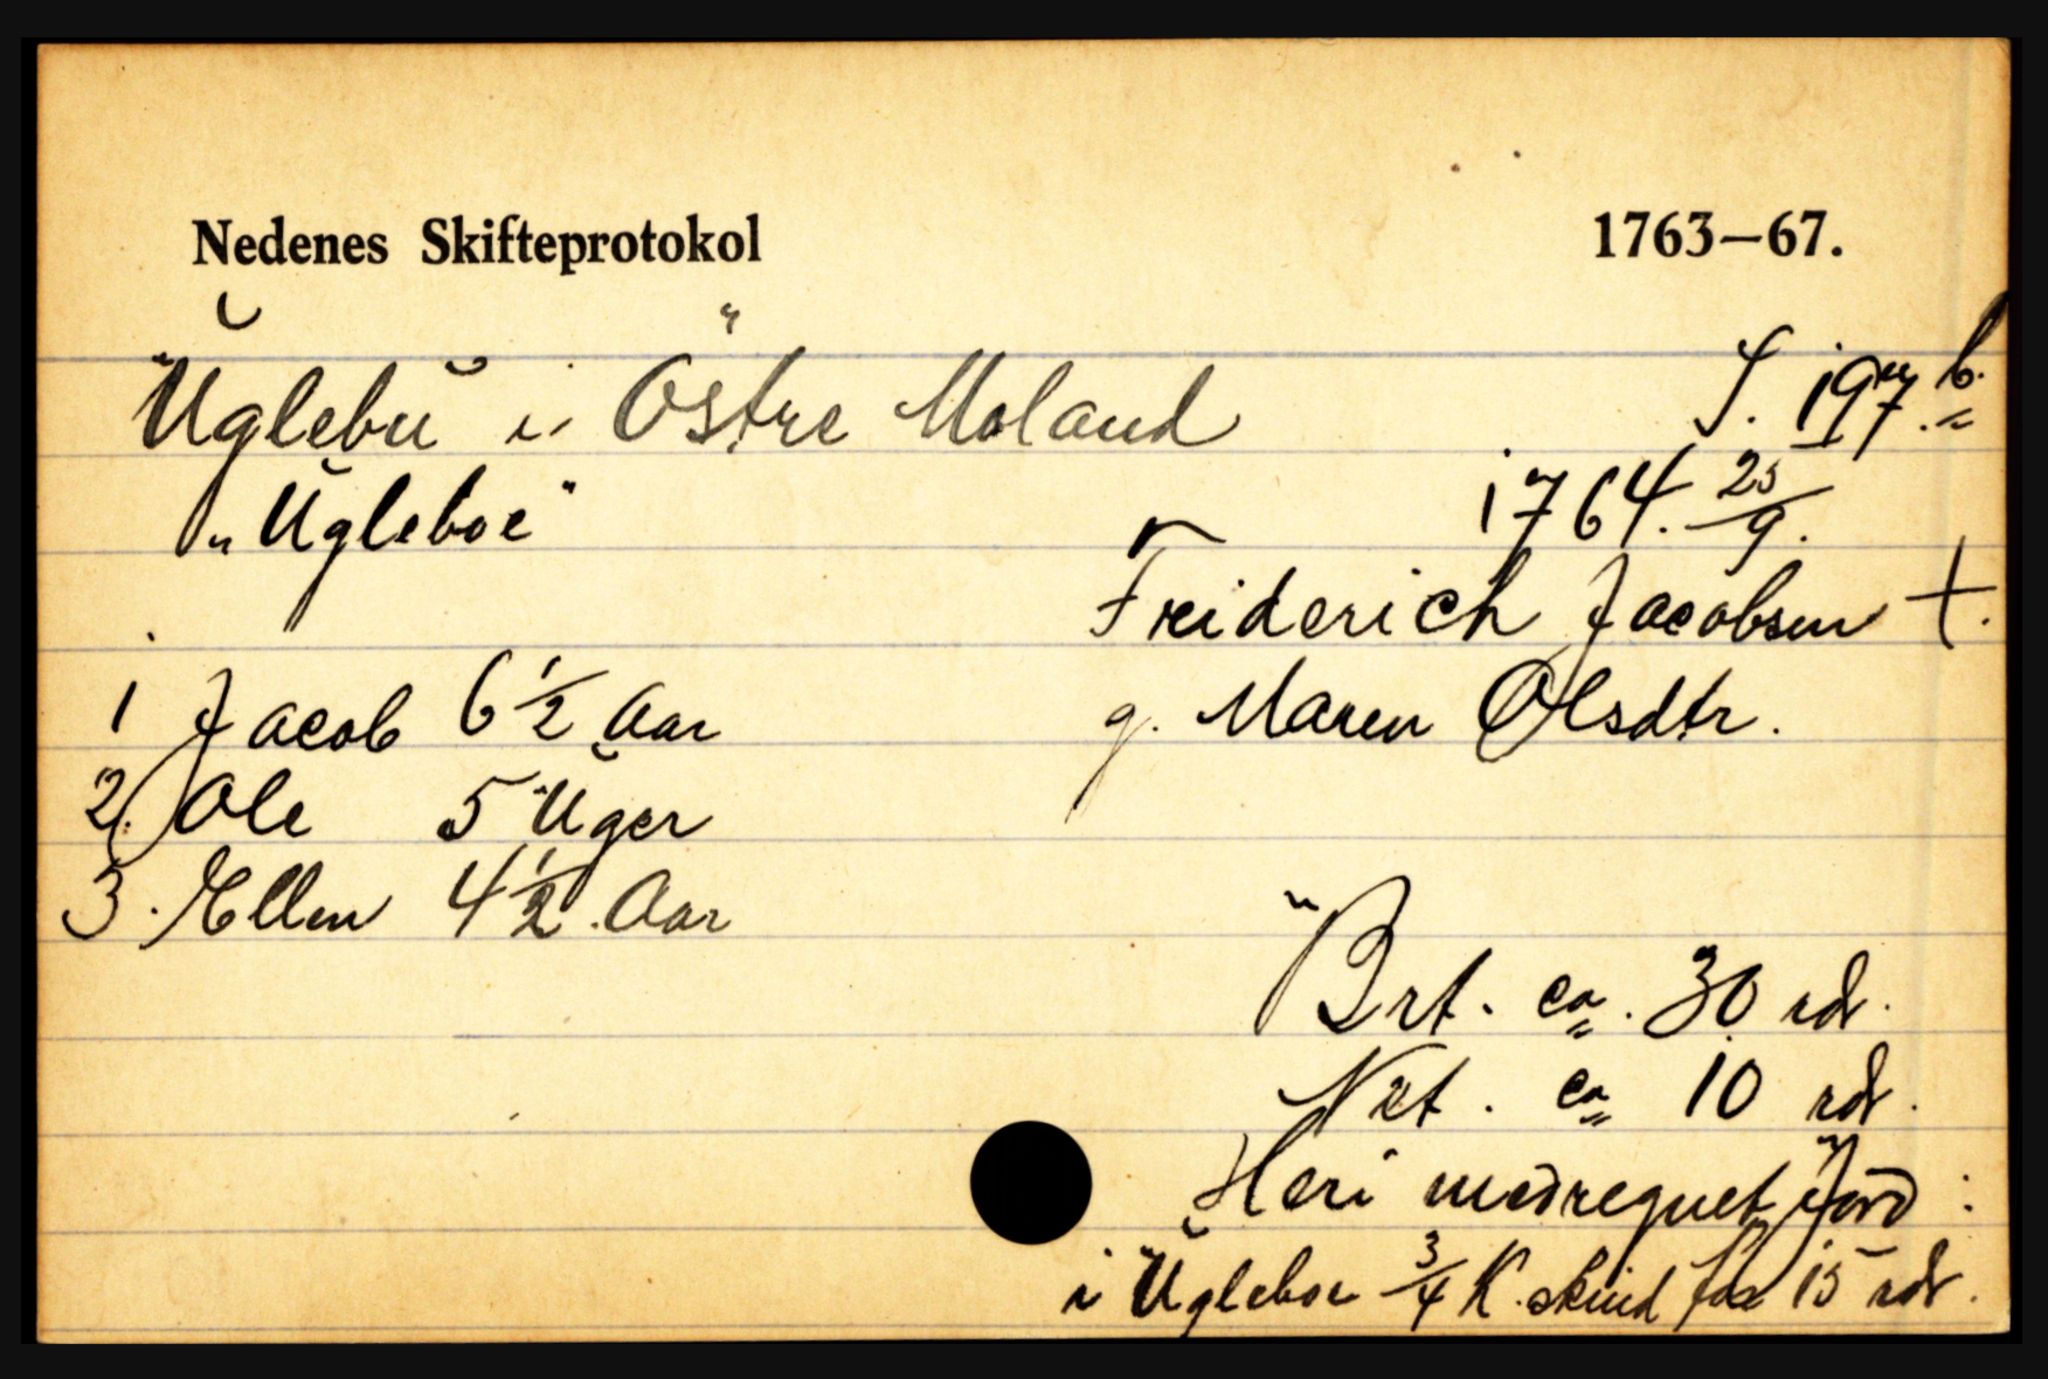 Nedenes Skifteprotokol 1763—67.
Uglebu i Östre Moland S. 197 b.
„Ugleboe“ 1764. 25/9.
Friderich Jacobsen †.
1 Jacob 6 1/2 Aar g. Maren Olsdtr.
2. Ole 5 Uger
3. Ellen 4 1/2 Aar
Brt. ca. 30 rdr.
Net. ca 10 rdr.
Heri medregnet Jord:
i Ugleboe 3/4 K. skind for 15 rdr.